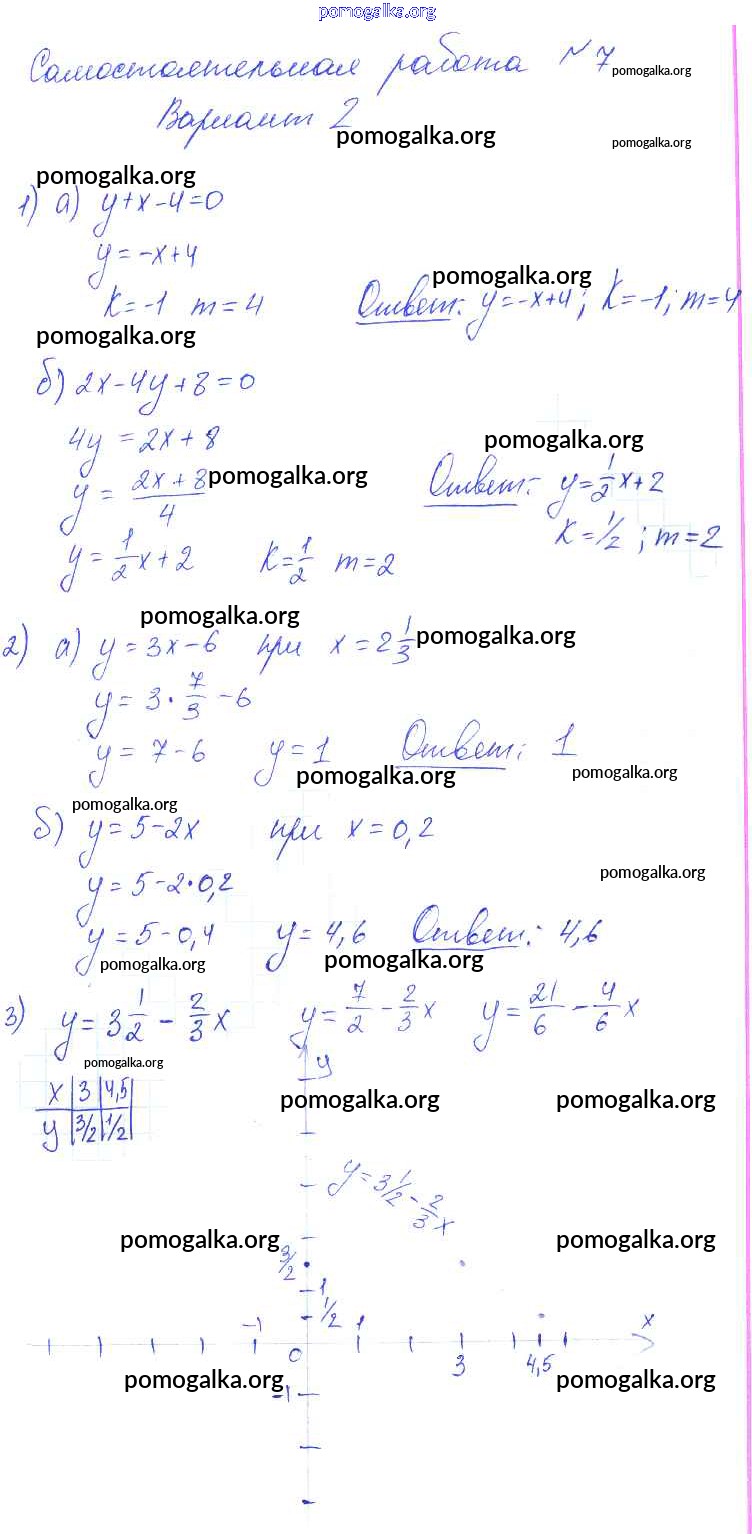 pomogalka.org
Самостоятельная работа №7 pomogalka.org
Вариант 2 pomogalka.org pomogalka.org
pomogalka.org
1) а) y+x-4=0
y=-x+4 pomogalka.org
K=-1 m=4 Ответ: y=-x+4; K=-1; m=4
pomogalka.org
б) 2x-4y+8=0
4y=2x+8 pomogalka.org
y=(2x+8)/4 pomogalka.org Ответ: y=1/2x+2
K=1/2; m=2
y=1/2x+2 K=1/2 m=2
pomogalka.org
2) а) y=3x-6 при x=2 1/3 pomogalka.org
y=3·7/3-6
y=7-6 y=1 Ответ: 1
pomogalka.org pomogalka.org
pomogalka.org
б) y=5-2x при x=0,2
pomogalka.org
y=5-2·0,2
y=5-0,4 y=4,6 Ответ: 4,6
pomogalka.org pomogalka.org
3) y=3 1/2-2/3x y=7/2-2/3x y=21/6-4/6x
pomogalka.org y
x 3 4,5 pomogalka.org pomogalka.org
y 3/2 1/2
y=3 1/2-2/3x
pomogalka.org pomogalka.org
3/2
1
1/2
-1 1 x
0 3 4,5
pomogalka.org pomogalka.org
-1